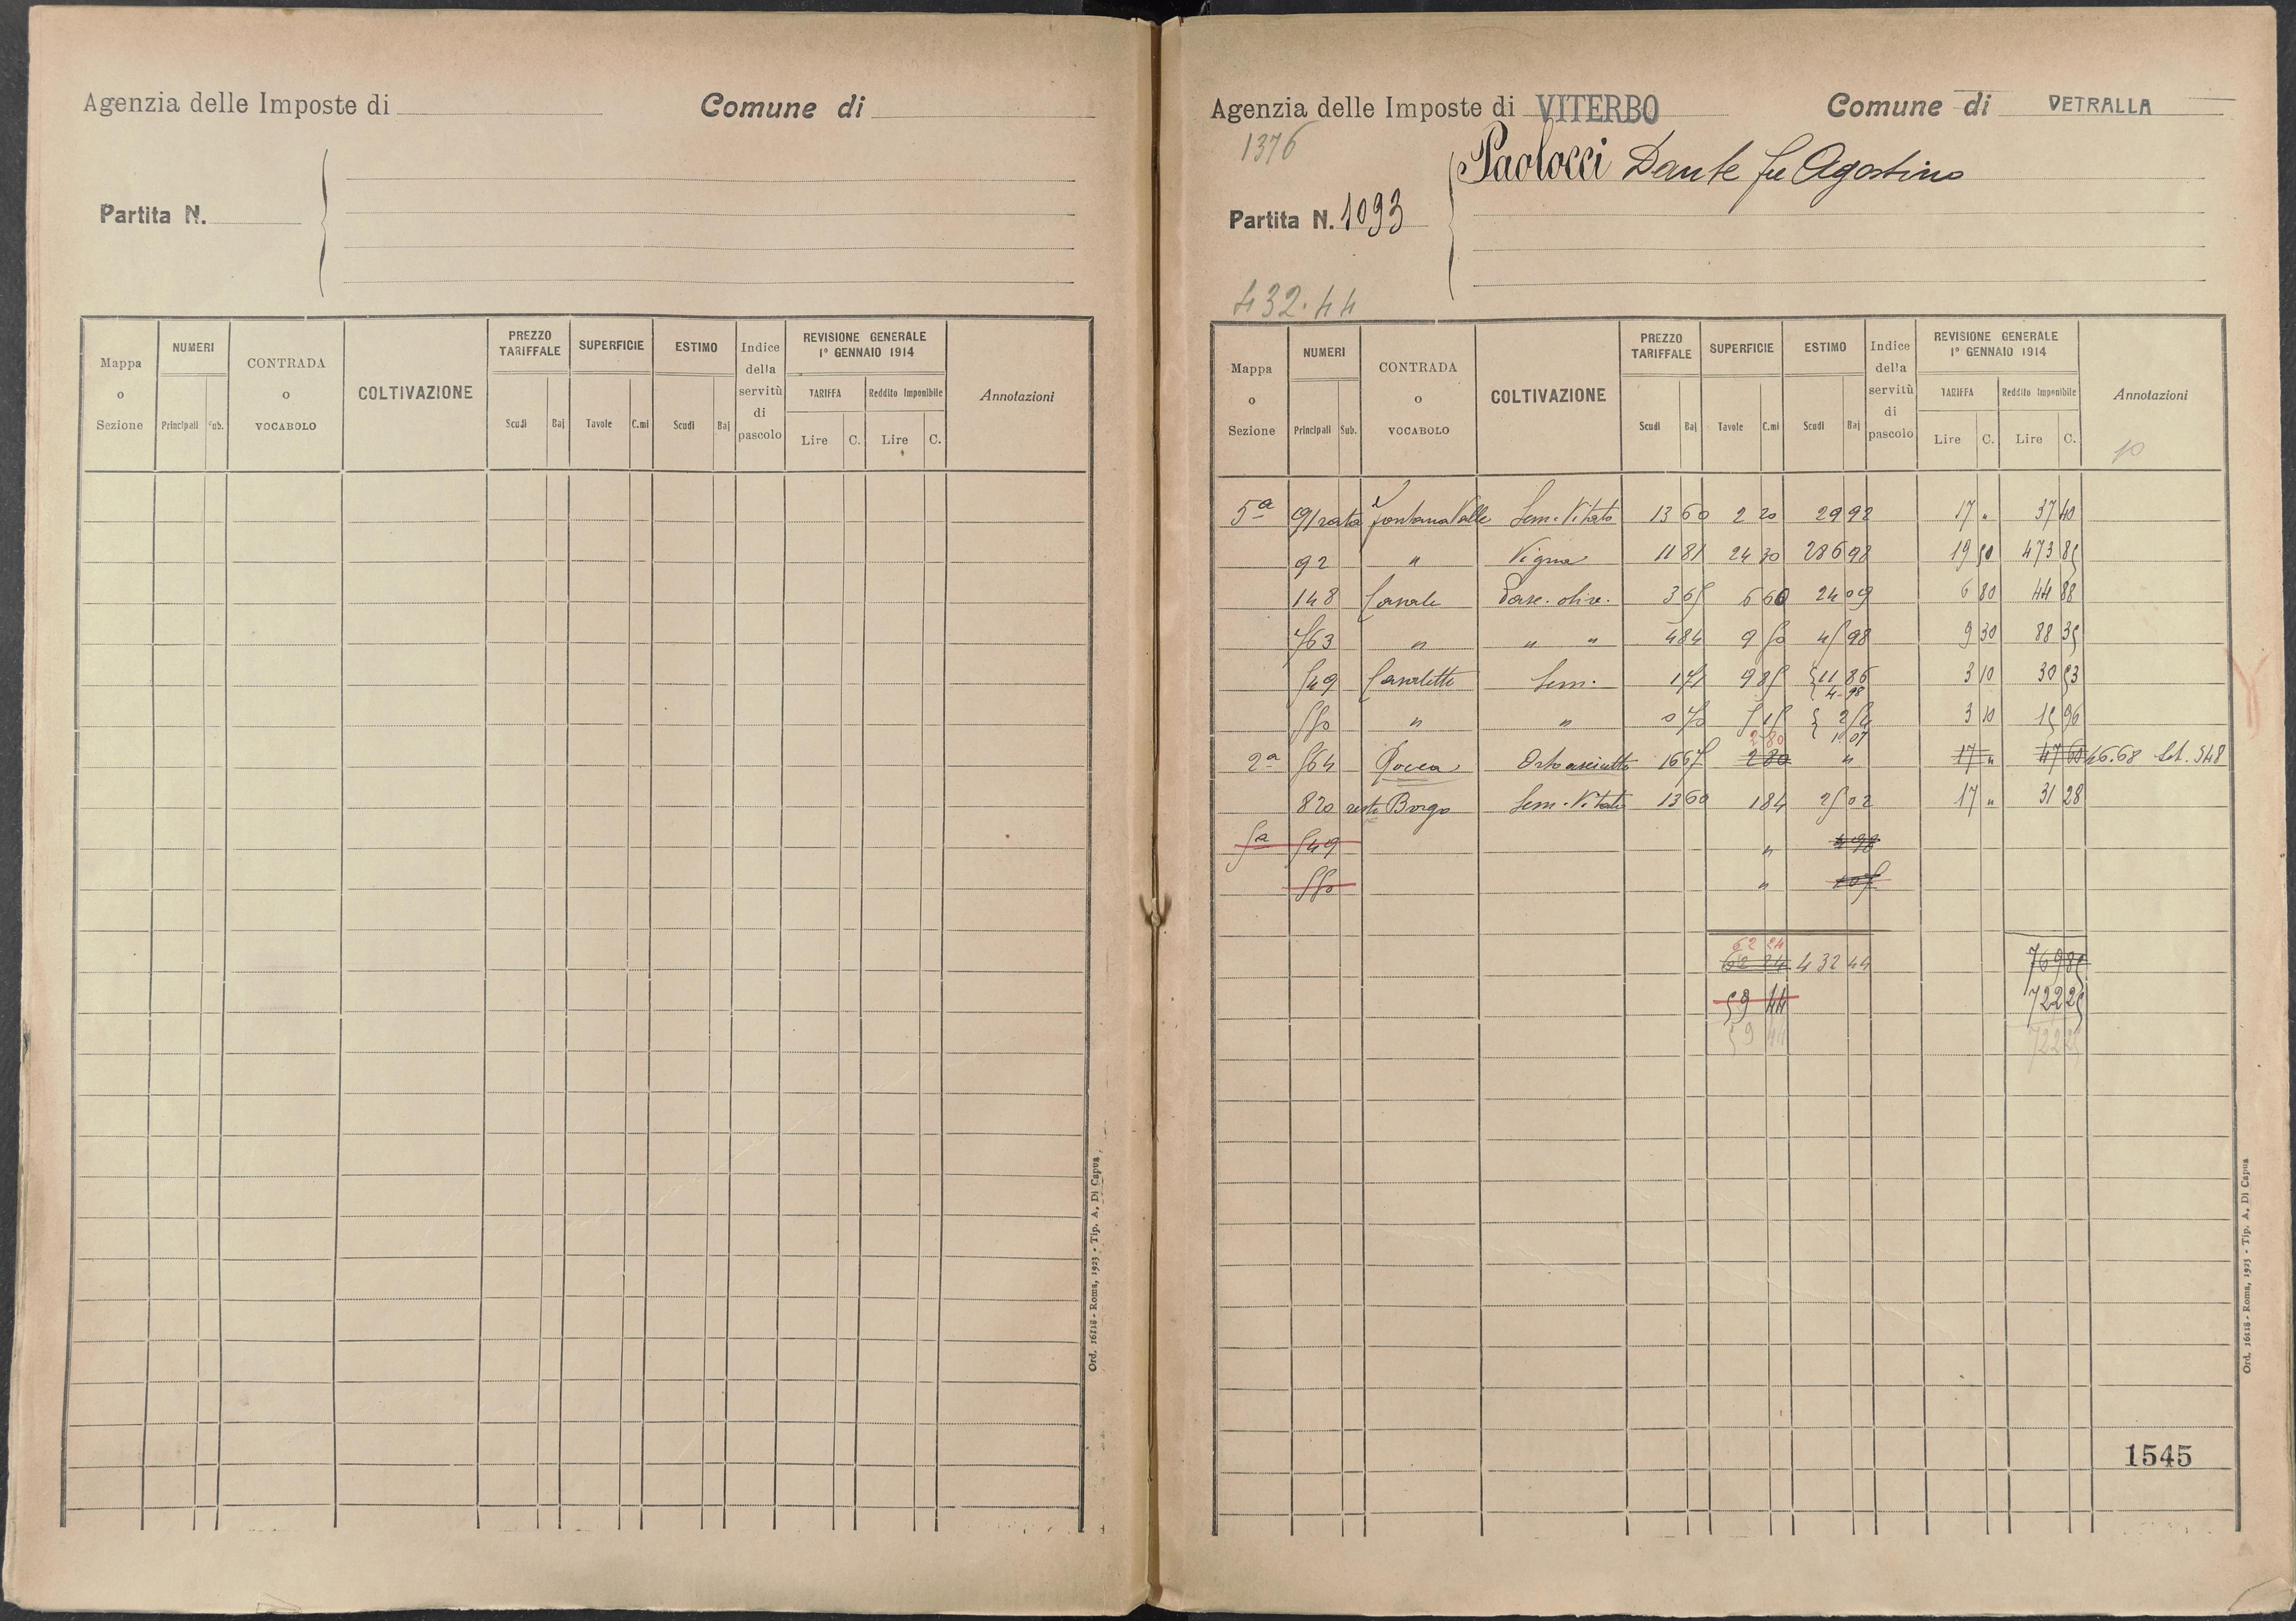 Agenzia delle Imposte di
Comune di
Partita N.
Mappa o Sezione
NUMERI
Principali
Sub.
CONTRADA o VOCABOLO
COLTIVAZIONE
PREZZO TARIFFALE
Scudi
Baj
SUPERFICIE
Tavole
C.mi
ESTIMO
Scudi
Baj
Indice della servitù di pascolo
REVISIONE GENERALE
1° GENNAIO 1914
TARIFFA
Lire
C.
Reddito Imponibile
Lire
C.
Annotazioni
Ord. 16118 - Roma, 1923 - Tip. A. Di Capua
Agenzia delle Imposte di VITERBO
Comune di VETRALLA
1376
Paolocci Dante fu Agostino
Partita N. 1093
432.44
Mappa o Sezione
NUMERI
Principali
Sub.
CONTRADA o VOCABOLO
COLTIVAZIONE
PREZZO TARIFFALE
Scudi
Baj
SUPERFICIE
Tavole
C.mi
ESTIMO
Scudi
Baj
Indice della servitù di pascolo
REVISIONE GENERALE
1° GENNAIO 1914
TARIFFA
Lire
C.
Reddito Imponibile
Lire
C.
Annotazioni
10
5a 91 rata Fontana Valle Sem. Vitato 13 60 2 20 29 92 17 " 37 40
92 " Vigna 11 81 24 30 286 98 19 50 473 85
148 Canale Pasc. oliv. 3 65 6 60 24 09 6 80 44 88
763 " " " 4 84 9 50 45 98 9 30 88 35
549 Canaletto Sem. 1 71 9 85 11 86 3 10 30 53
4 98
550 " " 0 70 5 15 2 54 3 10 15 96
2 80 1 07
2a 564 Rocca Orto asciutto 16 67 2 80 " 17 " 47 60 46.68 let. 548
820 resto Borgo Sem. Vitato 13 60 1 84 25 02 17 " 31 28
5a 549 " 4 98
550 " 1 07
62 24
62 24 432 44 769 85
59 44 722 25
59 44 722 25
1545
Ord. 16118 - Roma, 1923 - Tip. A. Di Capua